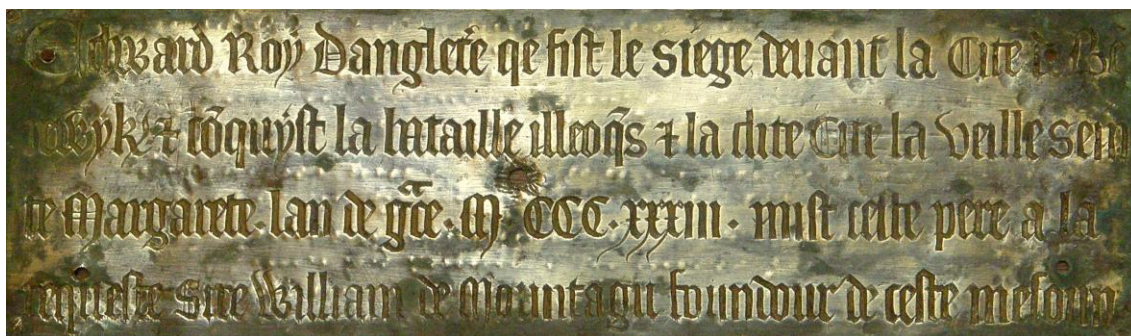 Edward Roy Danglet'e qe fist le siege deuant la Cite de Be
rewyk & cõquyst la bataille illeoq̃s & la dite Cite la veille sein
te Margarete · lan de gr̃ce · M · CCC · xxxiii · mist ceste pere a la
requeste Sire William de Mountagu foundour de ceste mesoun